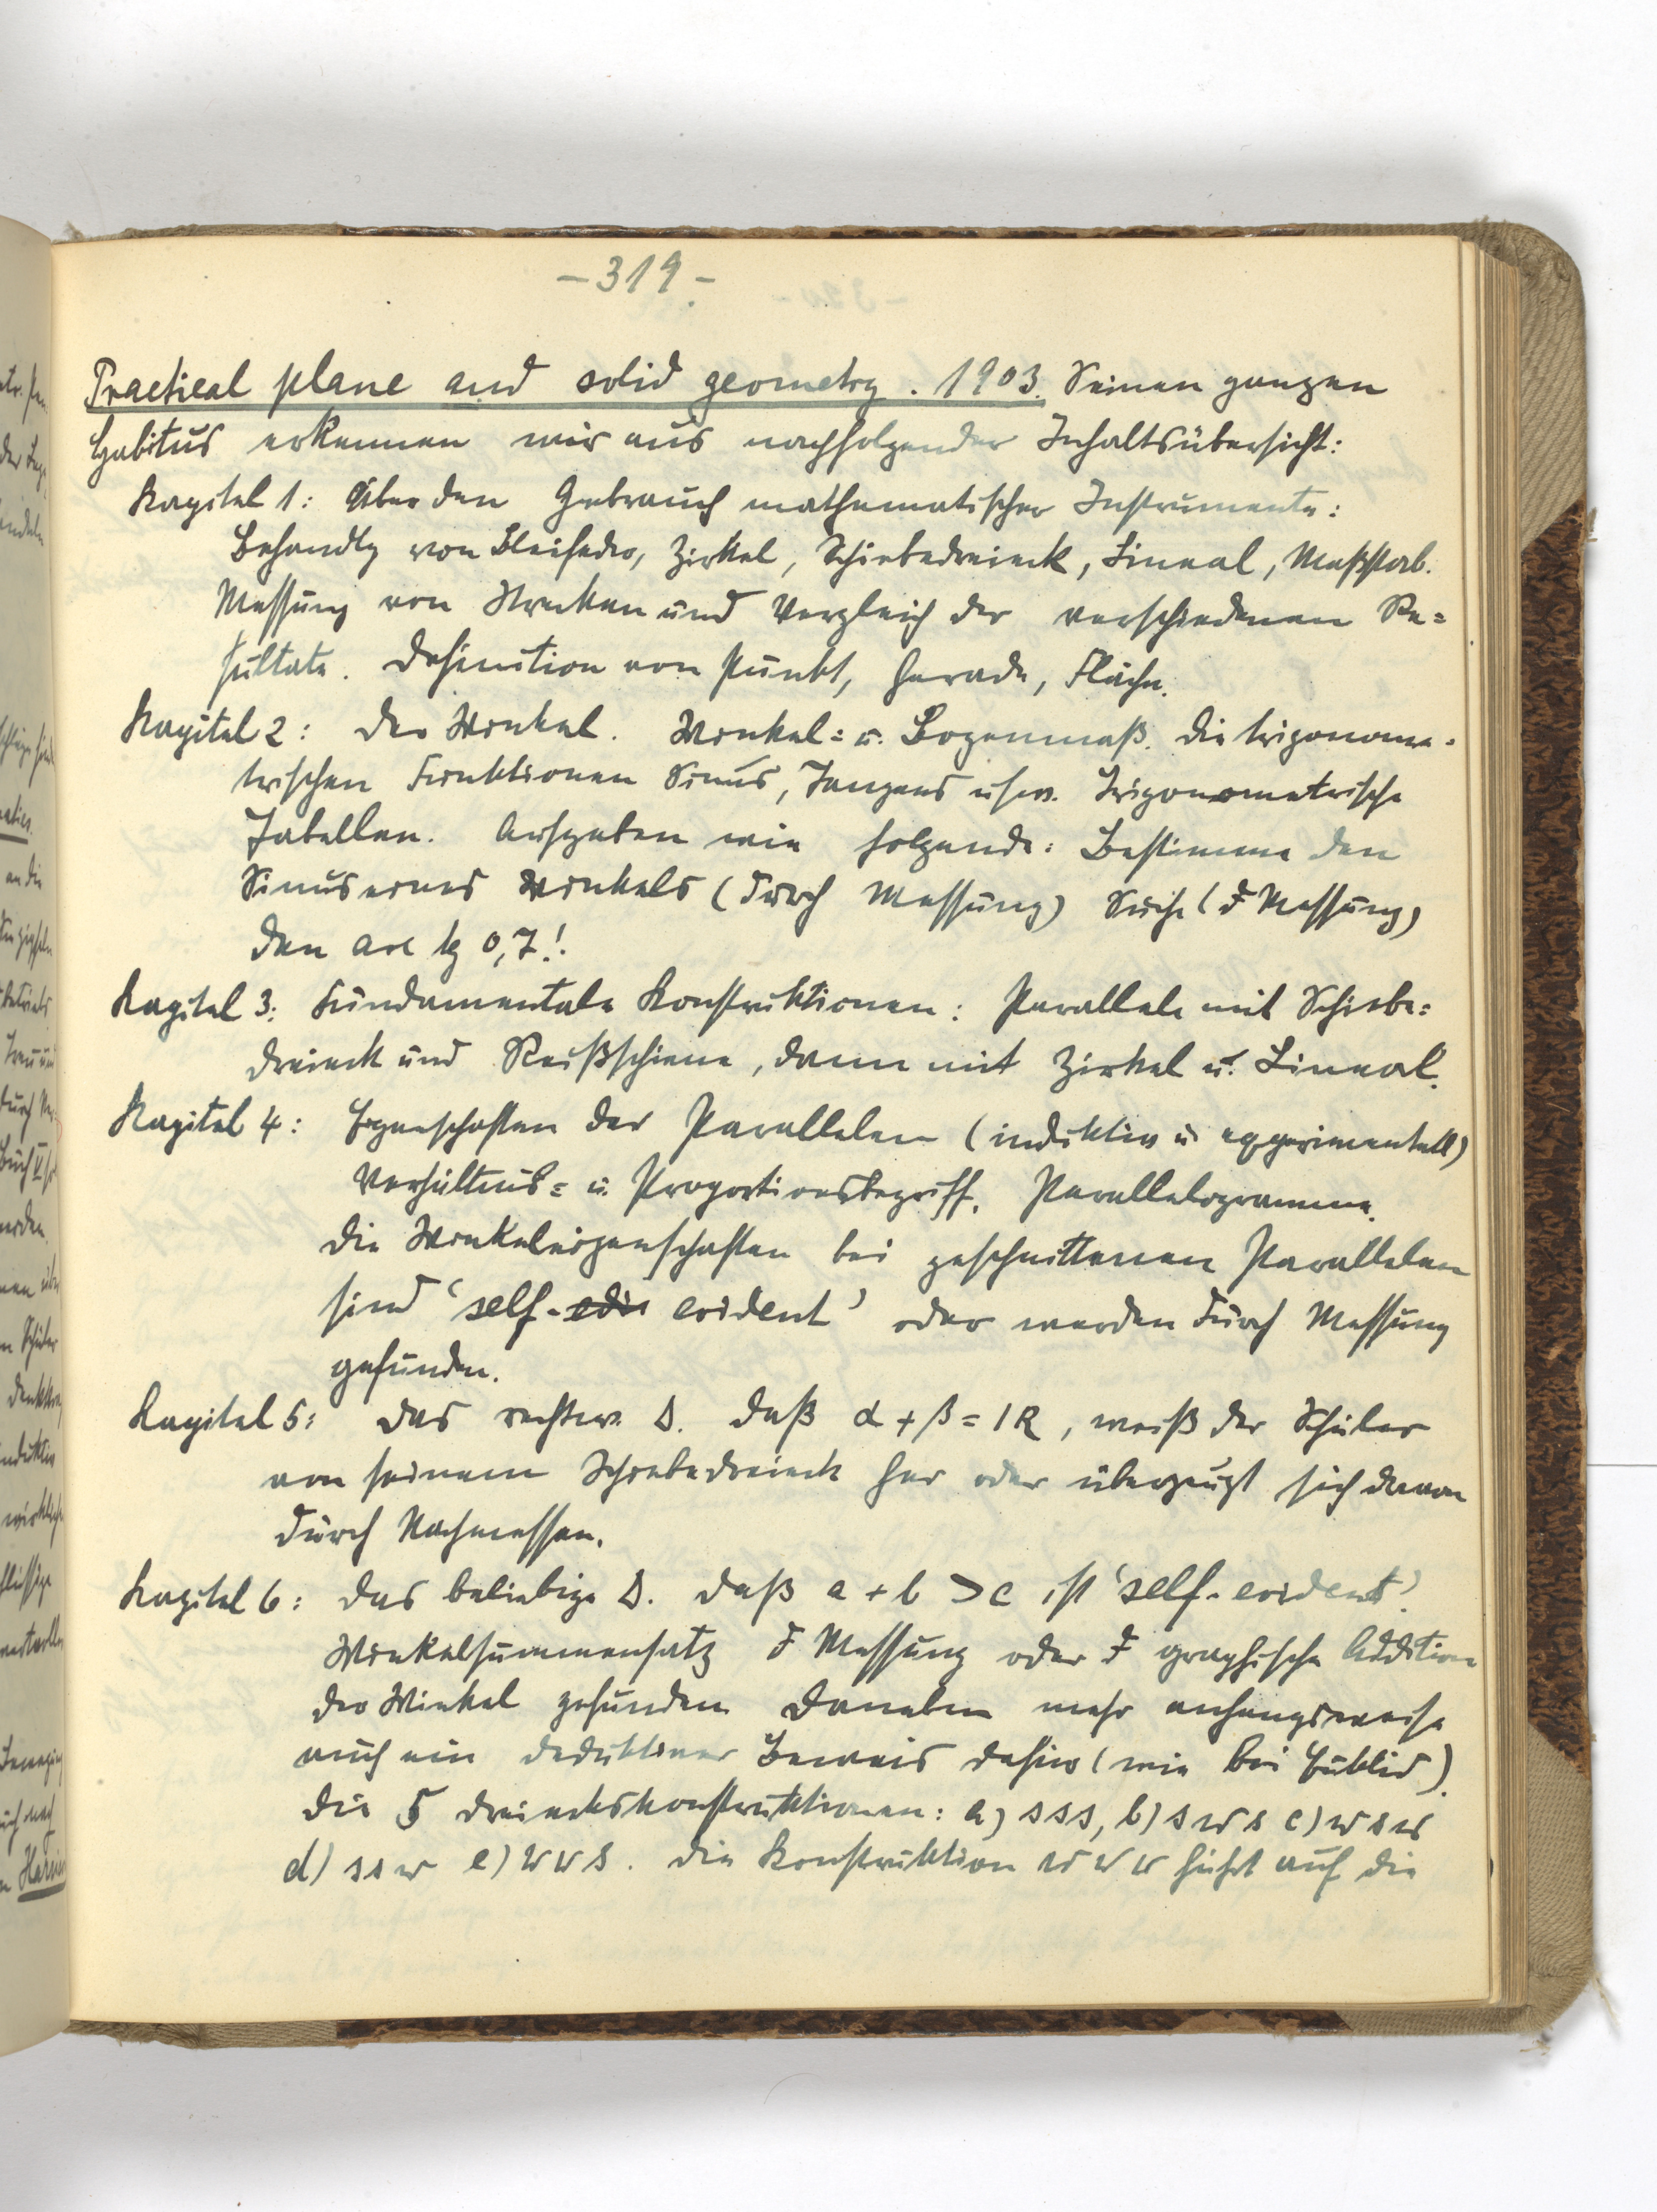 - 319 -
Practical plane and solid geometry. 1903. Seinen ganzen
Habitus erkennen wir aus nachfolgender Inhaltsübersicht:
Kapitel 1: Über den Gebrauch mathematischer Instrumente:
Behandlg von Bleifeder, Zirkel, Schiebedreieck, Lineal, Maßstab.
Messung von Strecken und Vergleich der verschiedenen Re=
sultate. Definition von Punkt, Gerade, Fläche.
Kapitel 2: Der Winkel. Winkel= u. Bogenmaß. Die trigonome=
trischen Funktionen Sinus, Tangens usw. Trigonometrische
Tabellen. Aufgaben wie folgende: Bestimme den
Sinus eines Winkels (durch Messung) Suche (d Messung)
den arc tg 0,7!
Kapitel 3: Fundamentale Konstruktionen: Parallele mit Schiebe=
dreieck und Reißschiene, dann mit Zirkel u. Lineal.
Kapitel 4: Eigenschaften der Parallelen (induktiv u. experimentell)
Verhältnis= u. Proportionsbegriff. Parallelogramme.
Die Winkeleigenschaften bei geschnittenen Parallelen
sind 'self-edi evident' oder werden durch Messung
gefunden.
Kapitel 5: Das rechtw. Δ. Daß α + β = 1R, weiß der Schüler
von seinem Schiebedreieck her oder überzeugt sich davon
durch Nachmessen.
Kapitel 6: Das beliebige Δ. Daß a + b > c ist 'self-evident'.
Winkelsummensatz d Messung oder d graphische Addition
der Winkel gefunden. Daneben mehr anhangsweise
auch ein deduktiver Beweis dafür (wie bei Euklid).
Die 5 Dreieckskonstruktionen: a) sss, b) sws c) wsw
d) ssw e) wws. Die Konstruktion www führt auf die